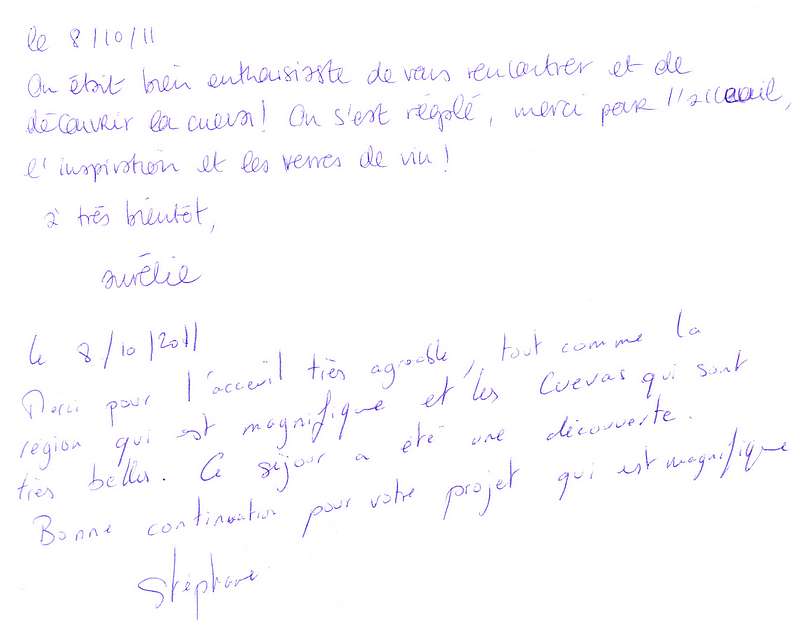 le 8/10/11
On était bien enthousiaste de vous rencontrer et de
découvrir la cueva! On s'est régalé, merci pour l'accueil,
l'inspiration et les verres de vin!
à très bientôt,
aurélie
le 8/10/2011
Merci pour l'acceuil très agréable, tout comme la
région qui est magnifique et les Cuevas qui sont
très belles. Ce séjour a été une découverte.
Bonne continuation pour votre projet qui est magnifique
Stéphane